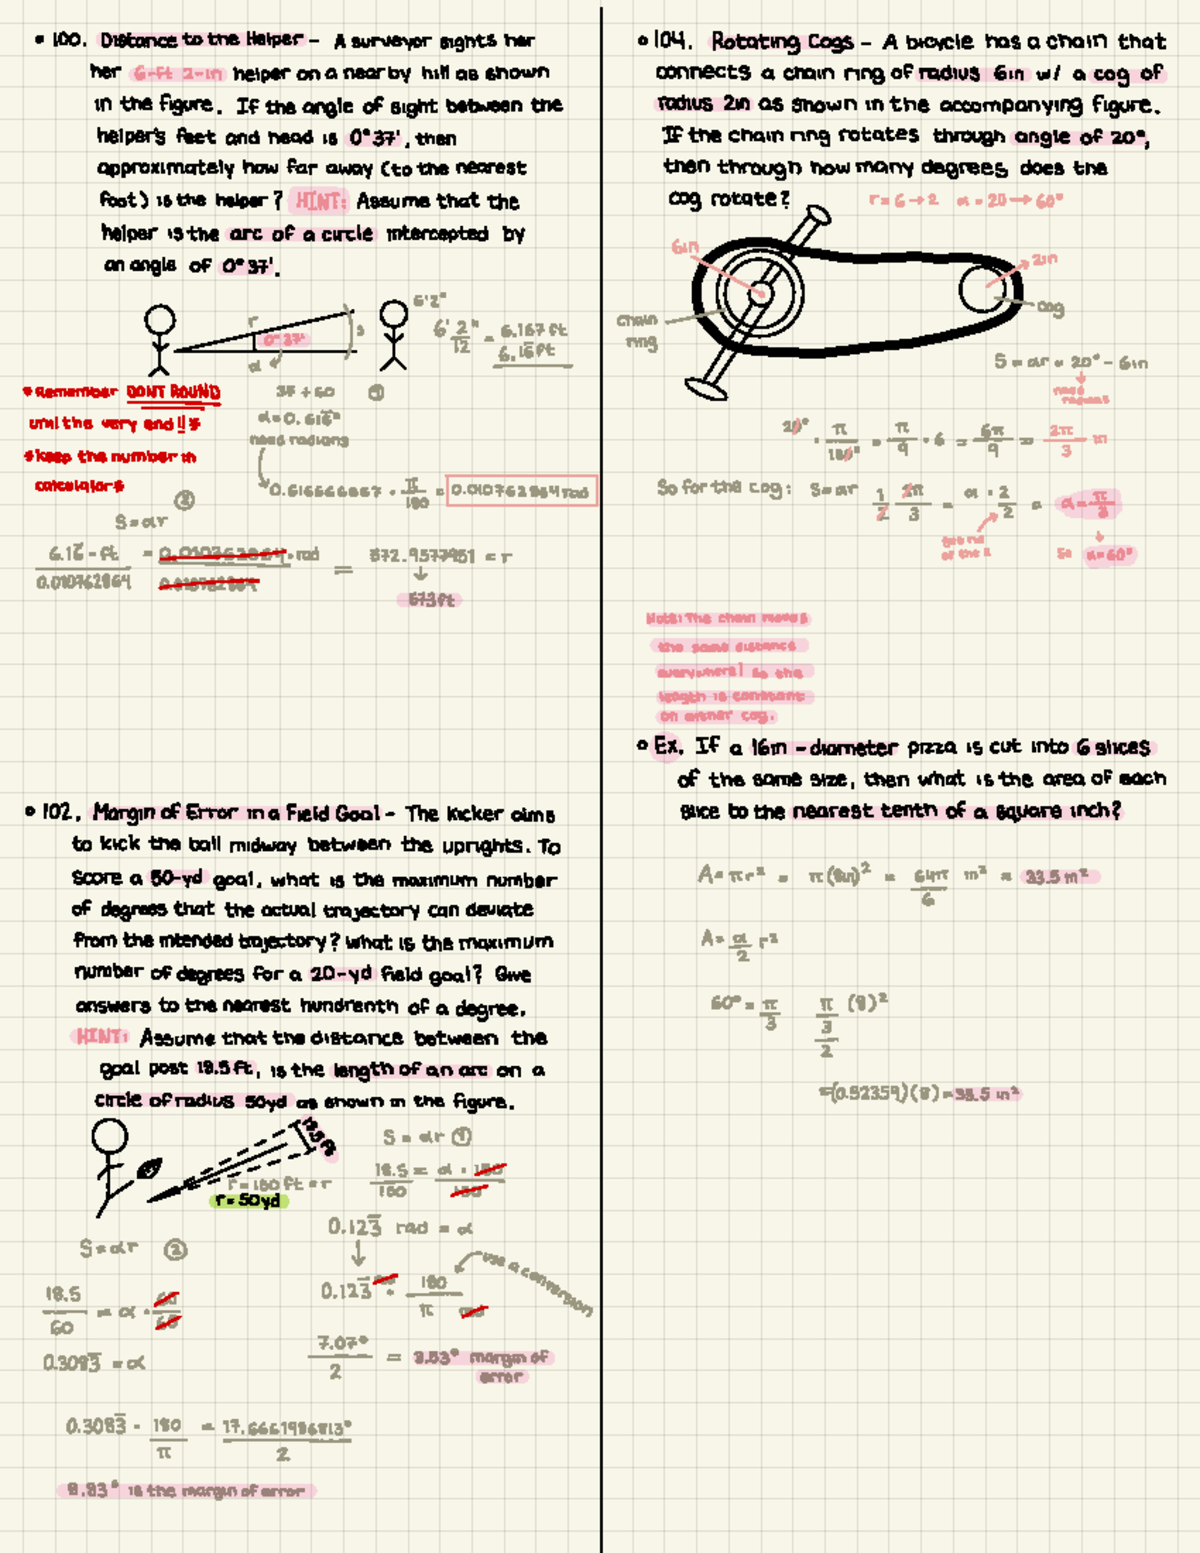 • 100. Distance to the Helper - A surveyor sights her
her 6-ft 2-in helper on a nearby hill as shown
in the figure. If the angle of sight between the
helper's feet and head is 0°37', then
approximately how far away (to the nearest
foot) is the helper? HINT: Assume that the
helper is the arc of a circle intercepted by
an angle of 0°37'.
r
0°37'
α
s
6'2"
6' 2/12 = 6.167 ft
6.16̅ ft
37 ÷ 60 ①
α = 0.616̅°
need radians
*Remember DONT ROUND
until the very end!! *
*keep the number in
calculator*
0.616666667 · π/180 = 0.010762864 rad
②
S = αr
6.16̅ - ft / 0.010762864 = 0.010762864 · rad / 0.010762864 = 572.9577951 = r
↓
573ft
• 102. Margin of Error in a Field Goal - The kicker aims
to kick the ball midway between the uprights. To
score a 50-yd goal, what is the maximum number
of degrees that the actual trajectory can deviate
from the intended trajectory? What is the maximum
number of degrees for a 20-yd field goal? Give
answers to the nearest hundrenth of a degree.
HINT: Assume that the distance between the
goal post 18.5 ft, is the length of an arc on a
circle of radius 50yd as shown in the figure.
18.5 ft
r = 150 ft = r
r = 50yd
S = αr ①
18.5/150 = α · 150/150
0.123̅ rad = α
↓
0.123̅ rad · 180/π rad
use a conversion
7.07°/2 = 3.53° margin of
error
S = αr ②
18.5/60 = α · 60/60
0.3083̅ = α
0.3083̅ - 180/π = 17.6661986813°/2
8.83° is the margin of error
• 104. Rotating Cogs - A bicycle has a chain that
connects a chain ring of radius 6in w/ a cog of
radius 2in as shown in the accompanying figure.
If the chain ring rotates through angle of 20°,
then through how many degrees does the
cog rotate?
r = 6 → 2 α = 20 → 60°
6in
2in
chain
ring
cog
S = αr = 20° - 6in
↓
need
radians
20° · π/180° = π/9 · 6 = 6π/9 = 2π/3 in
So for the cog: S = αr 1/2 2π/3 = α · 2/2 = α = π/3
get rid
of the 2
↓
So α = 60°
Note: The chain moves
the same distance
everywhere! so the
length is constant
on either cog.
• Ex. If a 16in - diameter pizza is cut into 6 slices
of the same size, then what is the area of each
slice to the nearest tenth of a square inch?
A = πr² = π(8in)² = 64π/6 in² = 33.5 in²
A = α/2 r²
60° = π/3 π/3/2 (8)²
=(0.52359)(8) = 33.5 in²